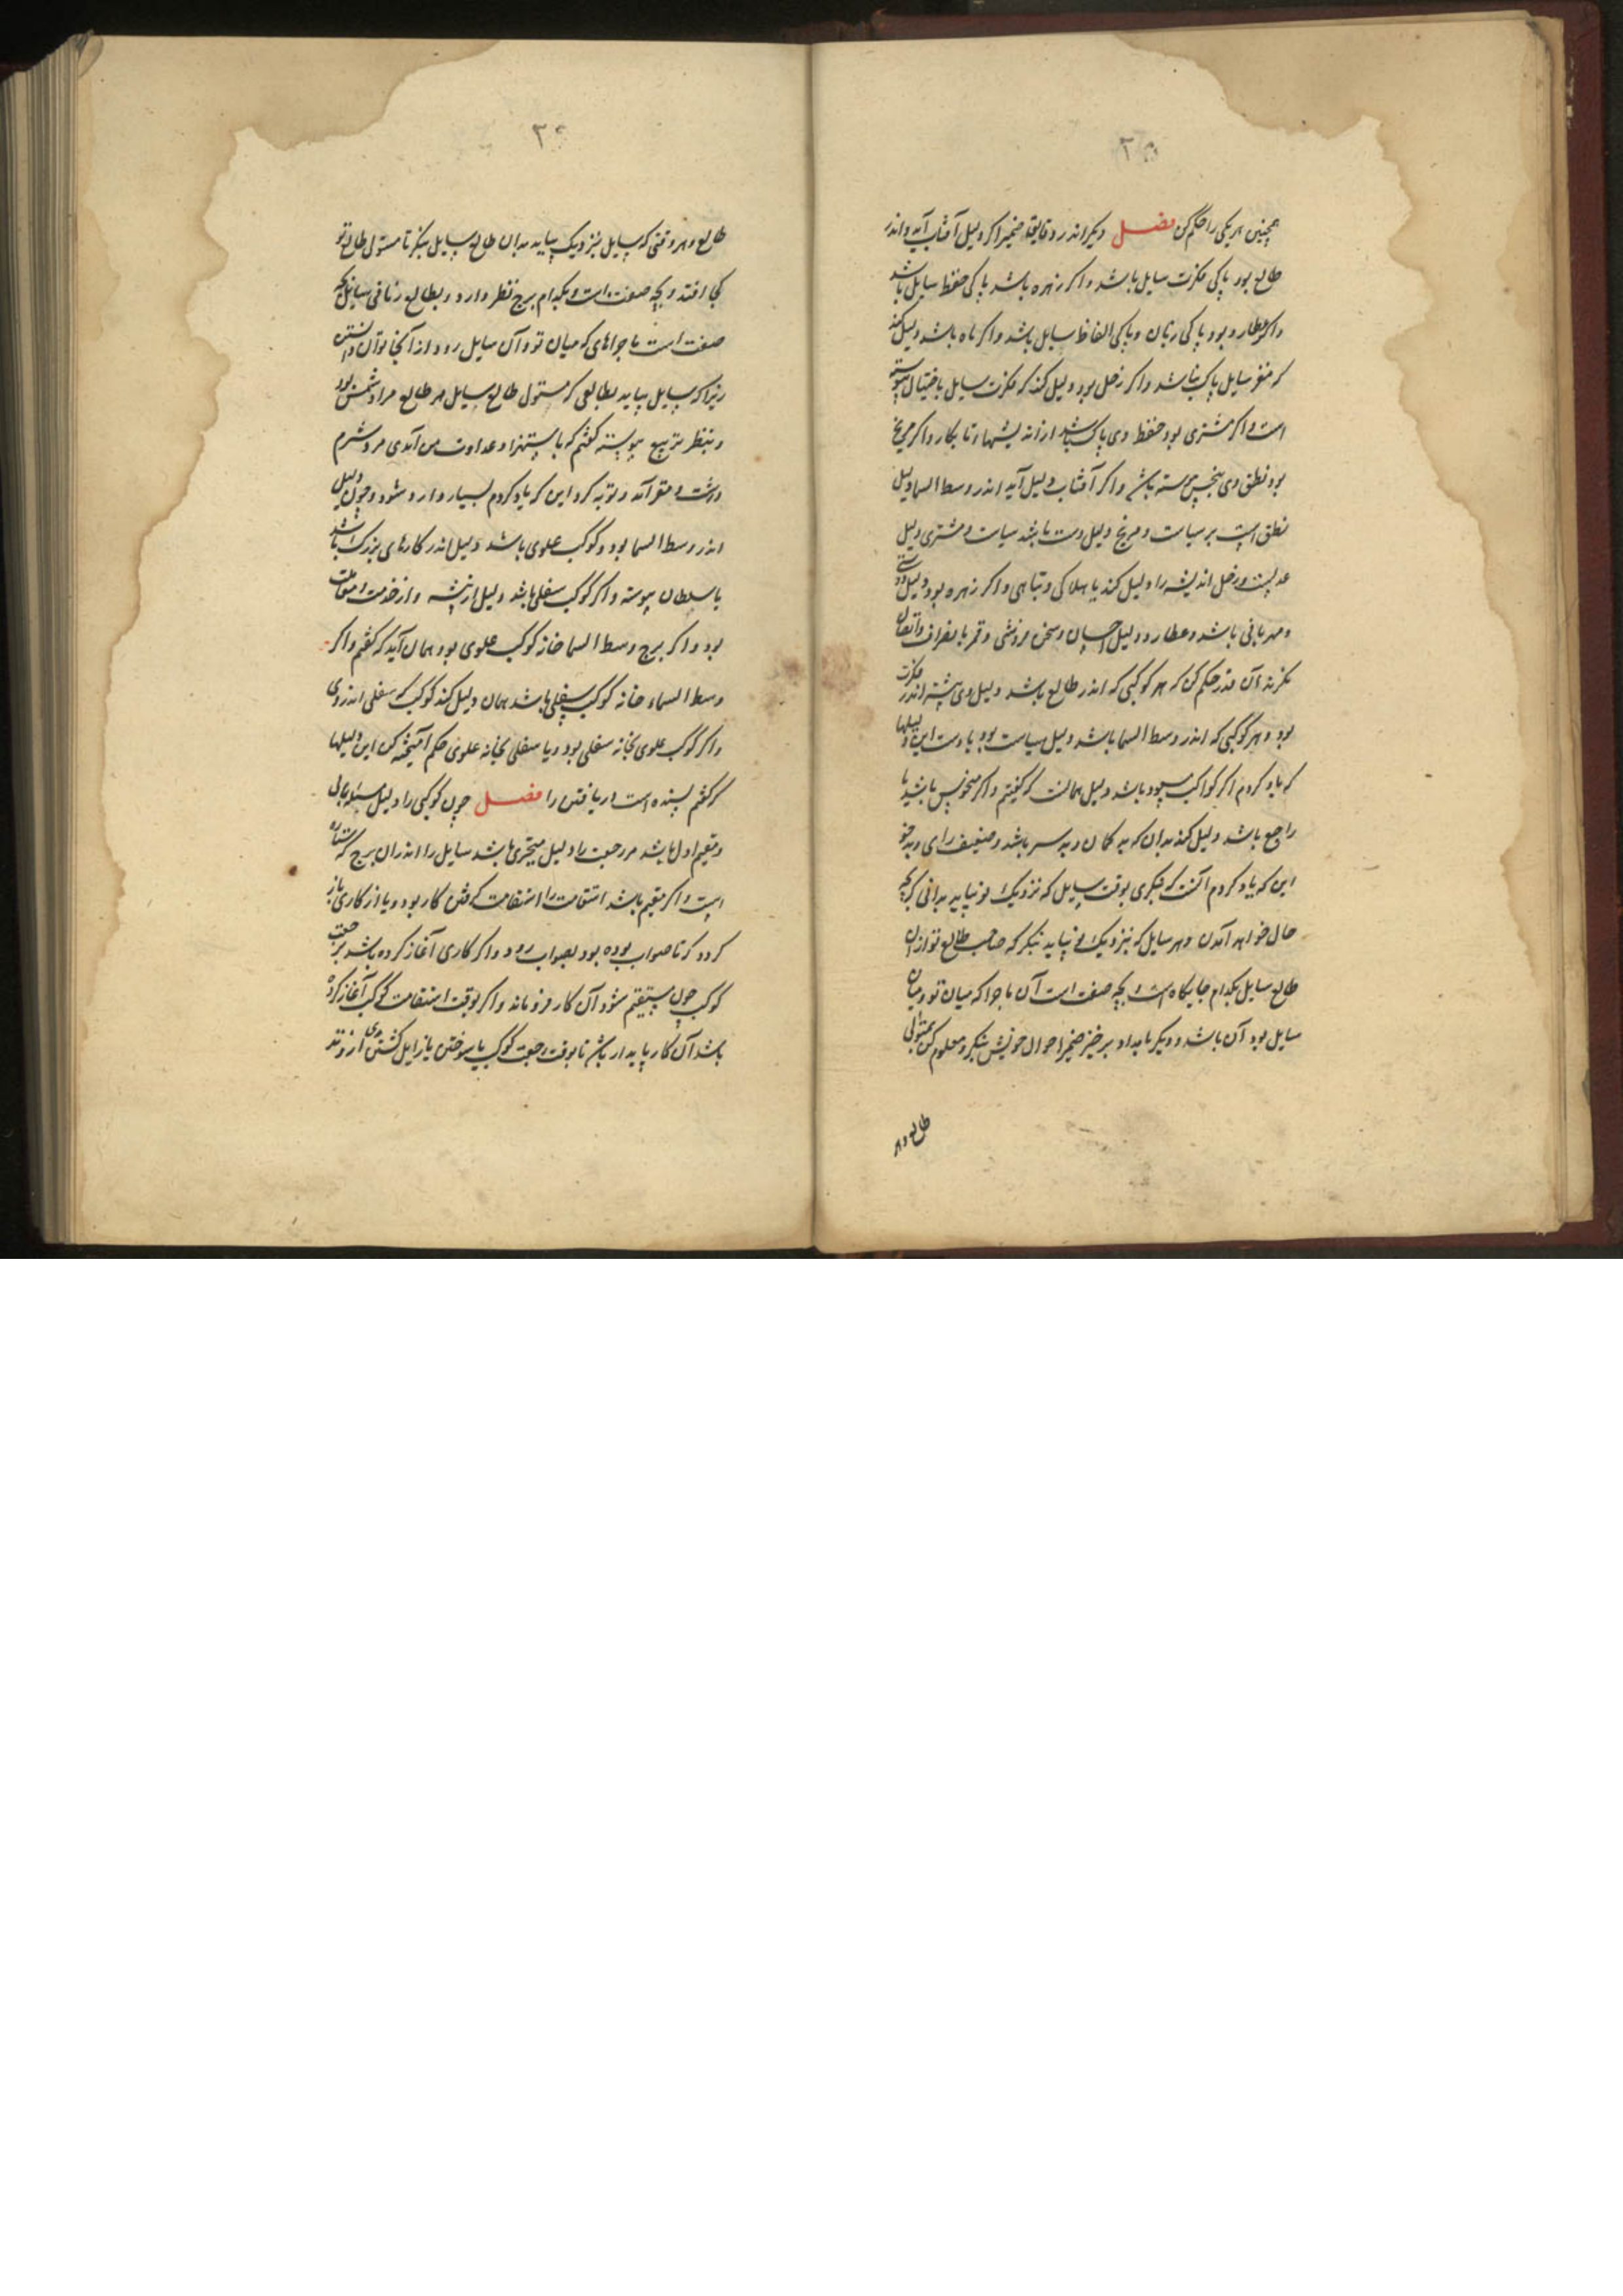 ۲۵
همچنین هر یکی را حکم کن فصل دیگر اندر دقایق ضمیر اگر دلیل آفتاب آید و اندر
طالع بود پاکی فکرت سایل باشد و اگر زهره باشد پاکی حفظ سایل باشد
و اگر عطارد بود پاکی زبان و پاکی الفاظ سایل باشد و اگر ماه باشد دلیل کند
که مغز سایل پاک باشد و اگر زحل بود دلیل کند که فکرت سایل باختیال پیوسته
است و اگر مشتری بود حفظ وی پاک باشد از اندیشهاء تا بکار و اگر مریخ
بود نطق وی بنحس پیوسته باشد و اگر آفتاب دلیل آید اندر وسط السما دلیل
نطق است بر سیاست و مریخ دلیل دست باشد سیاست و مشتری دلیل
عدلست و زحل اندیشه را دلیل کند یا هلاکی و تباهی و اگر زهره بود دلیل دوستی
و مهربانی باشد و عطارد دلیل احسان و سخن فروشی و قمر با نصراف و اتصال
نگرند آن قدر حکم کن که هر کوکبی که اندر طالع باشد دلیل وی بیشتر اندر فکرت
بود و هر کوکبی که اندر وسط السما باشد دلیل سیاست بود با دست این دلیلها
که یاد کردم اگر کواکب مسعود باشد دلیل همانست که گفتیم و اگر منحوس باشد یا
راجع باشد دلیل کند بدان که بد کمان و بد سر باشد و ضعیف رای و بدخو
این که یاد کردم آنست که بنکری بوقت سایل که نزدیک تو بیاید بدانی که بچه
حال خواهد آمدن و هر سایل که بنزدیک تو بیاید بنکر که صاحب طالع تو از آن
طالع سایل بکدام جایگاه است و بچه صفت است آن ماجرا که میان تو و میان
سایل بود آن باشد و دیگر بامداد برخیز ضمیر احوال خویش بنکر و معلوم کن بمستولی
طالع و هر
۲۶
طالع و هر وقتی که سایل بنزدیک بیاید بدان طالع سایل بنکر تا مستولی طالع تو
کجا افتد و بچه صفت است و بکدام برج نظر دارد و بطالع زمانی سایل بچه
صفت است ماجراهای که میان تو و آن سایل رود از آنجا توان دانستن
زیرا که سایل بیاید بطالعی که مستولی طالع سایل مر طالع مرا دشمن بود
و بنظر تربیع پیوسته گفتم که باستهزا و عداوت من آمدی مرد شرم
داشت و مقر آمد و توبه کرد این که یاد کردم بسیار وارد شود و چون دلیل
اندر وسط السما بود و کوکب علوی باشد دلیل اندر کارهای بزرگ باشد
با سلطان پیوسته و اگر کوکب سفلی باشد دلیل از پیشه و از خدمت و معاملت
بود و اگر برج وسط السما خانه کوکب علوی بود همان آید که گفتم و اگر
وسط السماء خانه کوکب سفلی باشد همان دلیل کند کوکب سفلی اندر وی
و اگر کوکب علوی بخانه سفلی بود و یا سفلی بخانه علوی حکم آمیخته کن این دلیلها
که گفتم بسنده است دریافتن را فصل چون کوکبی را دلیل مسئله یابی
و مقیم اول باشد مر رجعت را دلیل متحیری باشد سایل را اندران برج که ستاره
است و اگر مقیم باشد استقامت را استقامت کوفتن کار بود و یا از کاری باز
گردد که ناصواب بوده بود بصواب رود و اگر کاری آغاز کرده باشد بر رجعت
کوکب چون مستقیم شود آن کار فرو ماند و اگر بوقت استقامت کوکب آغاز کرده
باشد آن کار پایدار باشد تا بوقت رجعت کوکب یا سوختن یا زایل گشتن وی از وتد